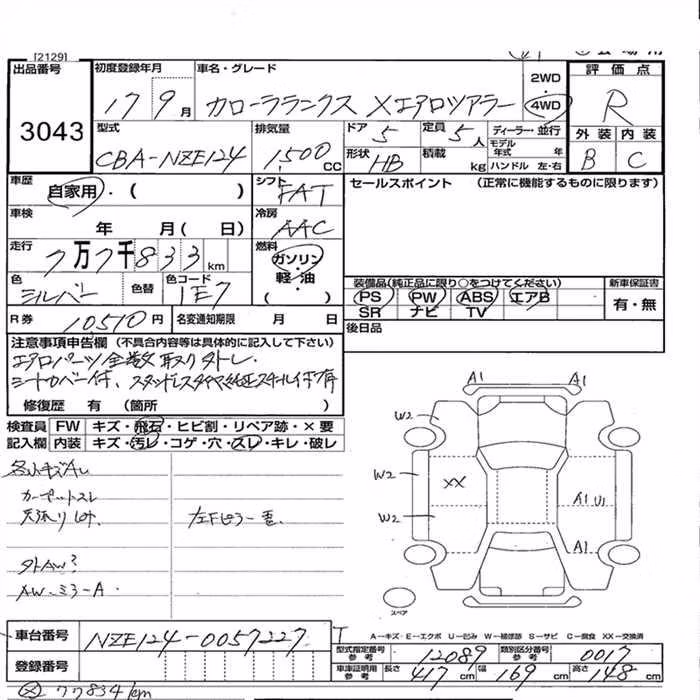 [2129]
出品番号
3043
初度登録年月
17 9月
車名・グレード
カローラランクス Xエアロツアラーー
2WD
・
4WD
評価点
R
型式
CBA-NZE124
排気量
1500cc
ドア 5
定員 5人
形状 HB
積載 kg
ディーラー・並行
モデル年式 年
ハンドル 左・右
外装 内装
B C
車歴
自家用・( )
シフト
FAT
車検
年 月( 日)
冷房
AAC
走行
7万7千833km
燃料
ガソリン
・
軽・油
( )
色
シルバー
色替
色コード
1E7
セールスポイント (正常に機能するものに限ります)
装備品(純正品に限り○をつけてください)
PS PW ABS エアB
SR ナビ TV
新車保証書
有・無
R券 10510円
名変通知期限 月 日
後日品
注意事項申告欄 (不具合内容等は具体的に記入して下さい)
エアロパーツ全数取り外し.
シートカバー付、スタッドレスタイヤ純正スチール付4本有
修復歴 有 (箇所 )
検査員 FW キズ・飛石・ヒビ割・リペア跡・×要
記入欄 内装 キズ・汚レ・コゲ・穴・スレ・キレ・破レ
各小キズAU
カーペットスレ
天張り
外AW
AW.ミラーA.
A1 A1
W2
W2 XX
W2
A1 U1
A1
スペア
A-キズ・E-エクボ U-凹み W-補修跡 S-サビ C-腐食 XX-交換済
車台番号 NZE124-0057227 T
登録番号
型式指定番号 参考 12089
類別区分番号 参考 0017
車庫証明用 参考 長さ 417cm 幅 169cm 高さ 148cm
77834km